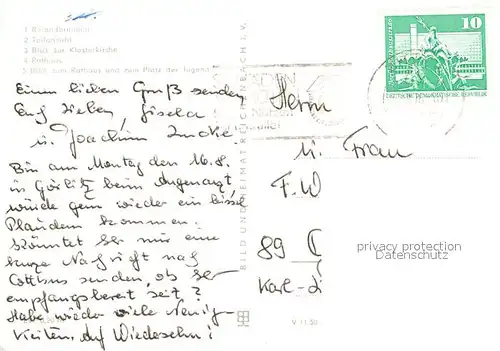 1 Rosenbrunnen
2 Teilansicht
3 Blick zur Klosterkirche
4 Rathaus
5 Blick zum Rathaus und zum Platz der Jugend
Einen lieben Gruß senden
Euch Lieben, Gisela
u. Joachim
Bin am Montag den 16.8.
in Görlitz beim Augenarzt,
würde gern wieder ein bissel
Plaudern kommen.
Könntet Ihr mir eine
kurze Nachricht nach
Cottbus senden, ob Ihr
empfangsbereit seit?
Habe wieder viele Neuig-
keiten. Auf Wiedersehn!
BILD UND HEIMAT REICHENBACH I. V.
V 11 50
10
DEUTSCHE DEMOKRATISCHE REPUBLIK
Herrn
u. Frau
F. W
89 G
Karl-Li
privacy protection
Datenschutz